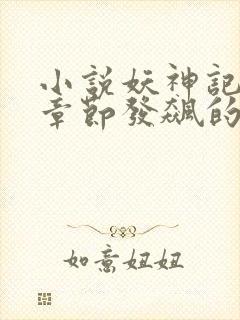 小說妖神記
章節發飆的
如意妞妞